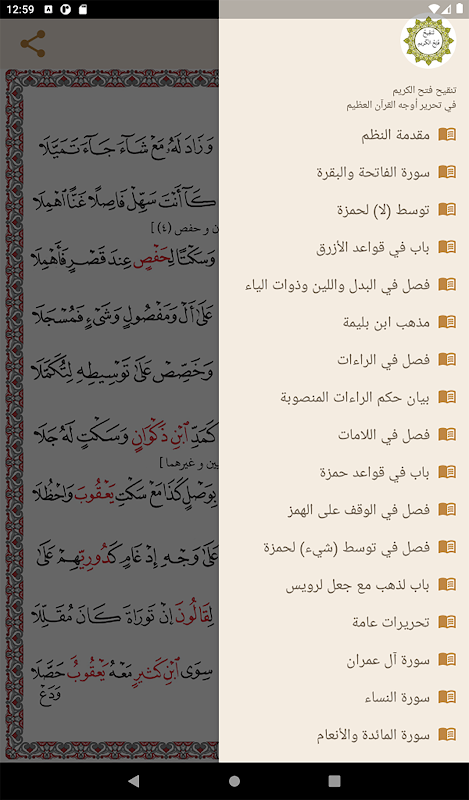 12:59
تنقيح
فتح الكريم
تنقيح فتح الكريم
في تحرير أوجه القرآن العظيم
مقدمة النظم
سورة الفاتحة والبقرة
توسط (لا) لحمزة
باب في قواعد الأزرق
فصل في البدل واللين وذوات الياء
مذهب ابن بليمة
فصل في الراءات
بيان حكم الراءات المنصوبة
فصل في اللامات
باب في قواعد حمزة
فصل في الوقف على الهمز
فصل في توسط (شيء) لحمزة
باب لذهب مع جعل لرويس
تحريرات عامة
سورة آل عمران
سورة النساء
سورة المائدة والأنعام
وَزَادَ لَهُ مَعْ شَاءَ جَاءَ تَمَيَّلَا
كَآأَنْتَ سَهِّلْ فَاصِلًا غَنَّا اهْمِلَا
ن و حفص (٤) ]
وَسَكْتًا لِحَفْصٍ عِندَ قَصْرٍ فَأَهْمِلَا
عَلَىٰ أَلْ وَمَفْصُولٍ وَشَيْءٍ فَمُسْجَلَا
وَخَصِّصْ عَلَىٰ تَوْسِيطِهِ لِتُكَمِّلَا
كَمَدِّ ابْنِ ذَكْوَانٍ وَسَكْتٍ لَهُ جَلَا
ين و غيرهما ]
بِوَصْلٍ كَذَا مَعْ سَكْتِ يَعْقُوبَ وَاحْظُلَا
عَلَىٰ وَجْهِ إِدْغَامٍ كَدُورِيِّهِمْ عَلَىٰ
لِقَالُونَ إِنْ تَوْرَاةَ كَانَ مُقَلِّلَا
سِوَى ابْنِ كَثِيرٍ مَعْهُ يَعْقُوبُ حَصَّلَا
وَدَعْ